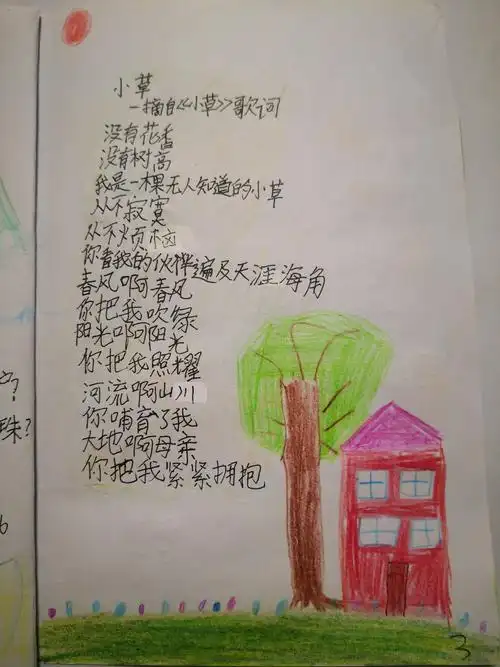 小草
一摘自《小草》歌词
没有花香
没有树高
我是一棵无人知道的小草
从不寂寞
从不烦恼
你看我的伙伴遍及天涯海角
春风啊春风
你把我吹绿
阳光啊阳光
你把我照耀
河流啊山川
你哺育了我
大地啊母亲
你把我紧紧拥抱
3
珠?